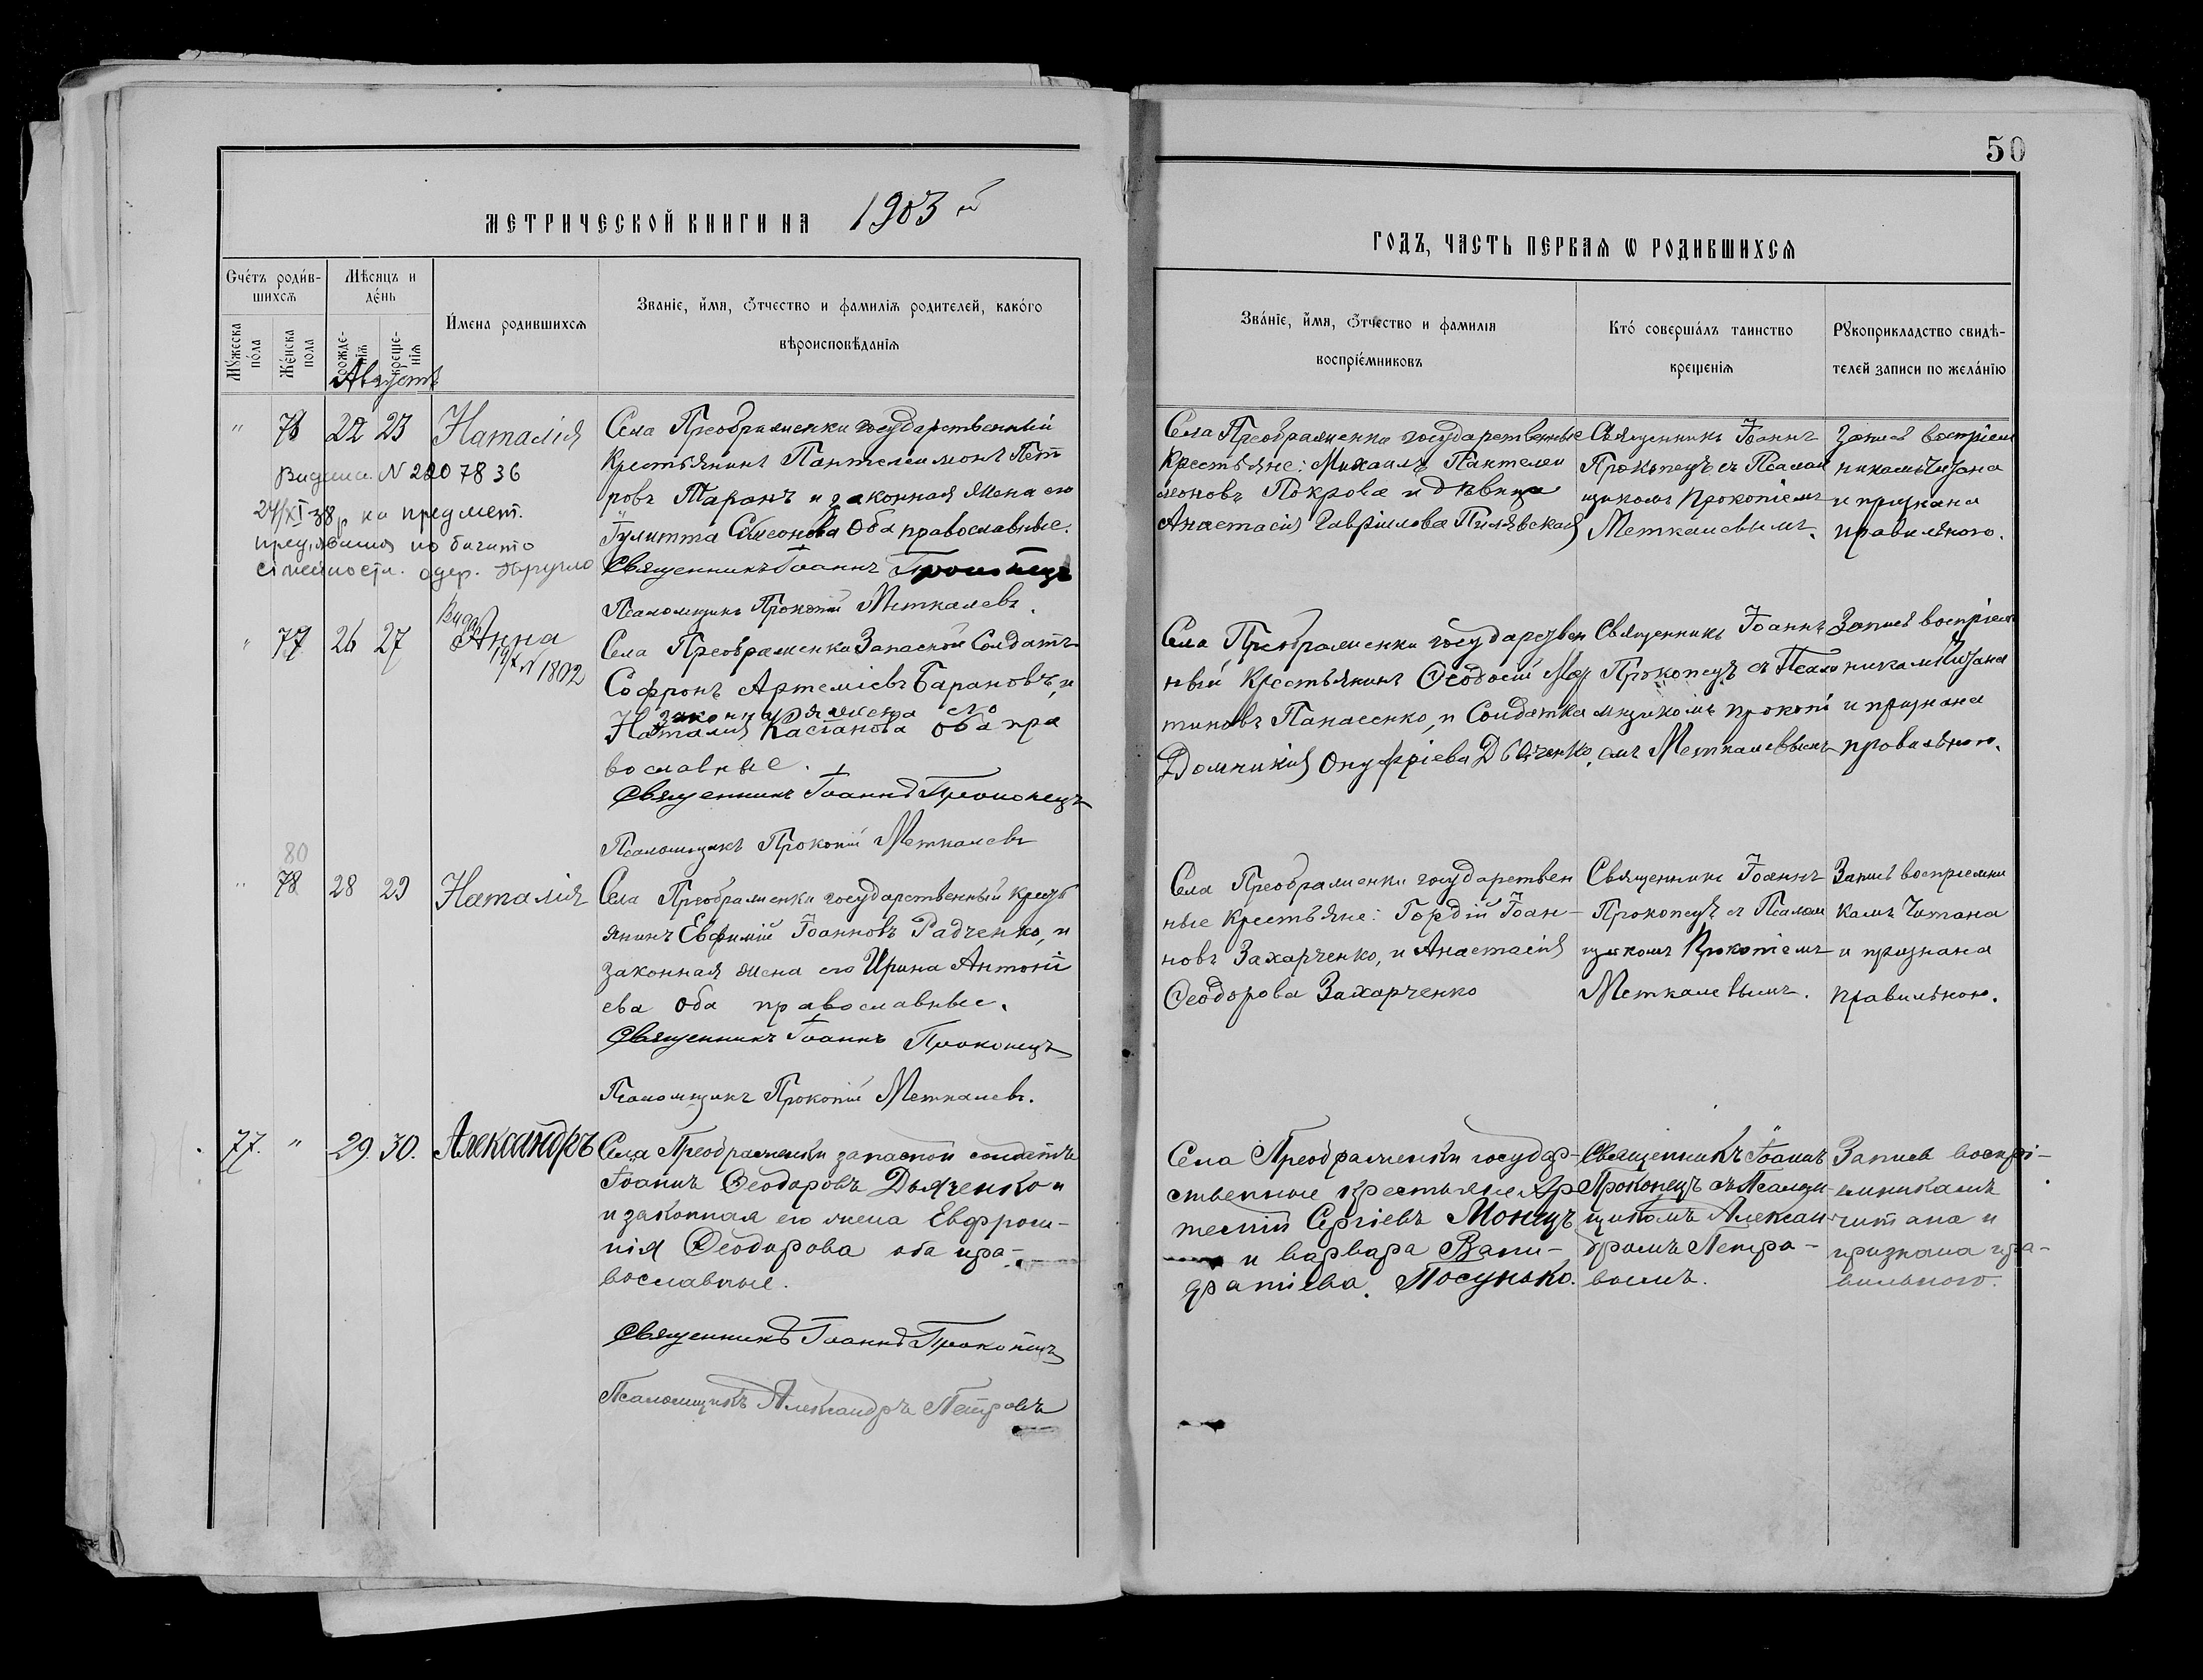 50
МЕТРИЧЕСКОЙ КНИГИ НА 1903 й
ГОДЪ, ЧАСТЬ ПЕРВАЯ Ѡ РОДИВШИХСЯ
Счетъ родив-
шихся
Мѣсяцъ и
день
Мужеска
пола
Женска
пола
рожде-
нія
креще-
нія
Имена родившихся
Званіе, имя, отчество и фамилія родителей, какого
вѣроисповѣданія
Званіе, имя, отчество и фамилія
воспріемниковъ
Кто совершалъ таинство
крещенія
Рукоприкладство свидѣ-
телей записи по желанію
Августъ
" 76 22 23 Наталія
Села Преображенки государственный
крестьянинъ Пантелеимонъ Пет
ровъ Таранъ и законная жена его
Іулитта Симеонова оба православные.
Священникъ Іоаннъ Прокопецъ
Псаломщикъ Прокопій Меткалевъ.
24/XI 38 р на предмет.
Села Преображенки государственные
крестьяне: Михаилъ Пантелеи
моновъ Покрова и дѣвица
Анастасія Гавріилова Пилявская
Священникъ Іоаннъ
Прокопецъ съ Псалом
щикомъ Прокопіемъ
Меткалевымъ.
Запись воспріем
никамъ читана
и признана
правильною.
" 77 26 27 Анна
19/X N 1802
Села Преображенки Запасной Солдатъ
Софронъ Артеміевъ Барановъ, и
законная жена его
Наталія Касіанова оба пра
вославные.
Священникъ Іоаннъ Прокопецъ
Псаломщикъ Прокопій Меткалевъ
Села Преображенки государствен
ный крестьянинъ Ѳеодосій Мар
тиновъ Панасенко, и Солдатка
Домникія Онуфріева Дьяченко.
Священникъ Іоаннъ
Прокопецъ съ Псало
мщикомъ Прокопі
емъ Меткалевымъ
Запись воспріем
никамъ читана
и признана
правильною.
80
" 78 28 29 Наталія
Села Преображенки государственный крест
янинъ Евфимій Іоанновъ Радченко, и
законная жена его Ирина Антоні
ева оба православные.
Священникъ Іоаннъ Прокопецъ
Псаломщикъ Прокопій Меткалевъ.
Села Преображенки государствен
ные крестьяне: Гордій Іоан-
новъ Захарченко, и Анастасія
Ѳеодорова Захарченко
Священникъ Іоаннъ
Прокопецъ съ Псалом
щикомъ Прокопіемъ
Меткалевымъ.
Запись воспріемни
камъ читана
и признана
правильною.
77. " 29. 30. Александръ
Села Преображенки запасной солдатъ
Іоаннъ Ѳеодоровъ Дьяченко и
и законная его жена Евфроси-
нія Ѳеодорова оба пра-
вославные.
Священникъ Іоаннъ Прокопецъ
Псаломщикъ Александръ Петровъ
Села Преображенки государ-
ственные крестьяне Ар
темій Сергіевъ Монецъ
и Варвара Вани-
фатіева Посунько.
Священникъ Іоаннъ
Прокопецъ съ Псалом
щикомъ Алексан
дромъ Петро-
вымъ.
Запись воспрі-
емникамъ
читана и
признана пра-
вильною.